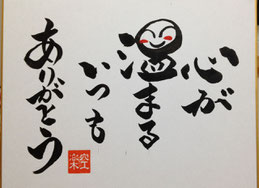 心が
温まる
いつも
ありがとう